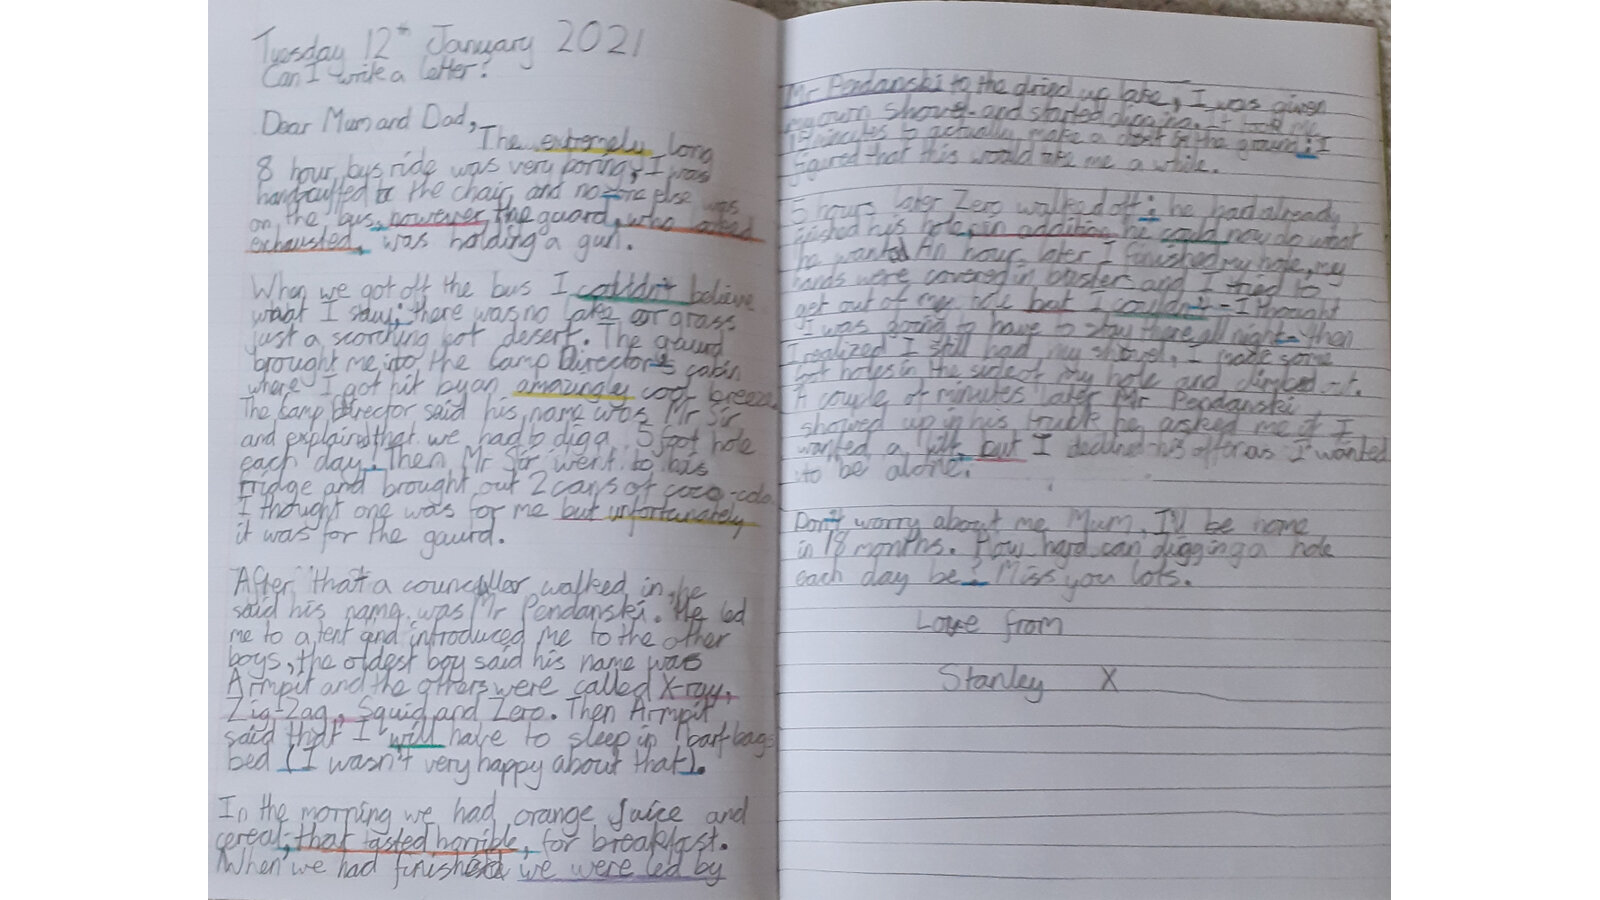 Tuesday 12th January 2021
Can I write a letter?
Dear Mum and Dad,
The extremely long
8 hour bus ride was very boring, I was
handcuffed to the chair, and no-one else was
on the bus, however the guard, who looked
exhausted, was holding a gun.
When we got off the bus I couldn't believe
what I saw; there was no lake or grass
just a scorching hot desert. The gaurd
brought me into the Camp Director's cabin
where I got hit by an amazingly cool breeze.
The Camp Director said his name was Mr Sir
and explained that we had to dig a 5 foot hole
each day. Then Mr Sir went to his
fridge and brought out 2 cans of coca-cola
I thought one was for me but unfortunately
it was for the gaurd.
After that a councillor walked in, he
said his name was Mr Pendanski. He led
me to a tent and introduced me to the other
boys, the oldest boy said his name was
Armpit and the others were called X-ray,
Zig-Zag, Squid and Zero. Then Armpit
said that I will have to sleep in barf bags
bed (I wasn't very happy about that).
In the morning we had orange juice and
cereal, that tasted horrible, for breakfast.
When we had finished we were led by
Mr Pendanski to the dried up lake, I was given
my own shovel and started digging. It took me
minutes to actually make a dent in the ground; I
figured that this would take me a while.
5 hours later Zero walked off; he had already
finished his hole, in addition he could now do what
he wanted An hour later I finished my hole, my
hands were covered in blisters and I tried to
get out of my hole but I couldn't - I thought
I was going to have to stay there all night - then
I realized I still had my shovel. I made some
foot holes in the side of my hole and climbed out.
A couple of minutes later Mr Pendanski
showed up in his truck he asked me if I
wanted a lift, but I declined his offer as I wanted
to be alone.
Don't worry about me Mum, I'll be home
in 18 months. How hard can digging a hole
each day be? Miss you lots.
Love from
Stanley X